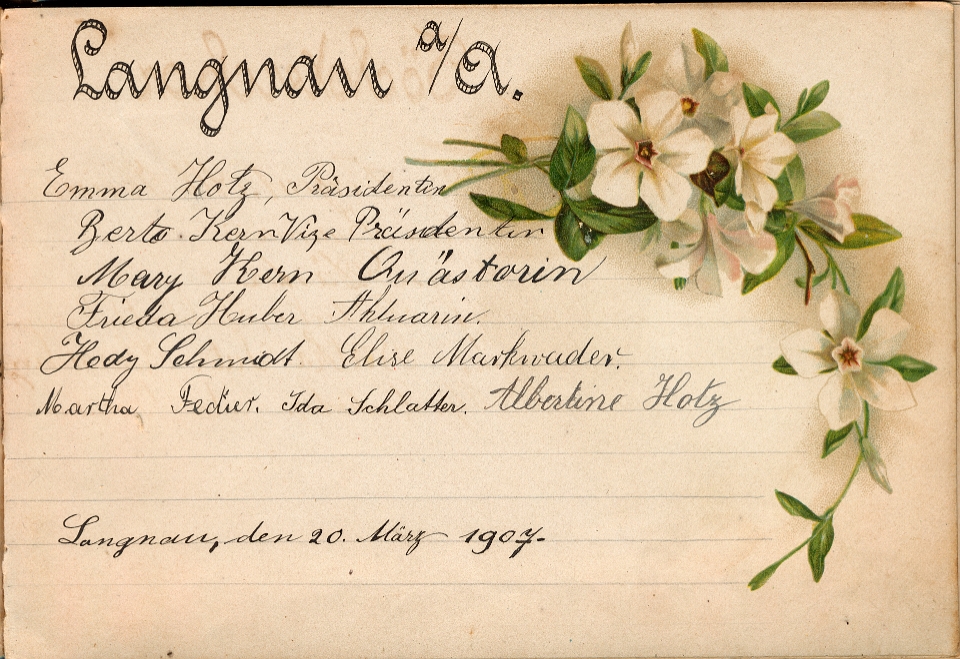 Langnau a/A.
Emma Hotz, Präsidentin
Berta Kern Vize Präsidentin
Mary Kern Quästorin
Frieda Huber Aktuarin.
Hedy Schmidt. Elise Markwader.
Martha Fedier. Ida Schlatter. Albertine Hotz
Langnau, den 20. März 1907.